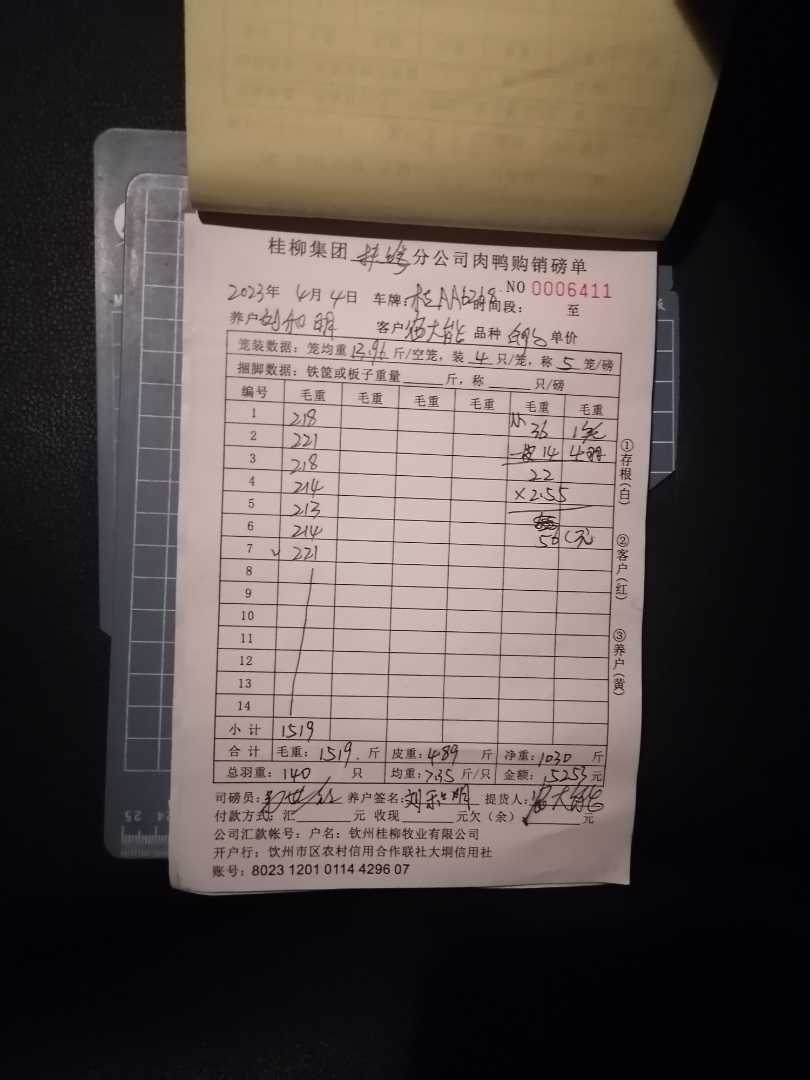 桂柳集团 分公司肉鸭购销磅单
NO 0006411
2023年 4月 4日 车牌: 时间段: 至
养户 刘和明 客户 大能 品种 单价
笼装数据: 笼均重 13.96 斤/空笼, 装 4 只/笼, 称 5 笼/磅
捆脚数据: 铁筐或板子重量 斤, 称 只/磅
编号 毛重 毛重 毛重 毛重 毛重 毛重
1 218 36
2 221 14
3 218 22
4 214 ×2.55
5 213
6 214 56(元)
7 221
8
9
10
11
12
13
14
小计 1519
合计 毛重: 1519. 斤 皮重: 489 斤 净重: 1030 斤
总羽重: 140 只 均重: 7.35 斤/只 金额: 5253 元
司磅员: 养户签名: 提货人: 大能
付款方式: 汇 元 收现 元欠(余) 元
公司汇款帐号: 户名: 钦州桂柳牧业有限公司
开户行: 钦州市区农村信用合作联社大垌信用社
账号: 8023 1201 0114 4296 07
①存根(白)
②客户(红)
③养户(黄)
25 24